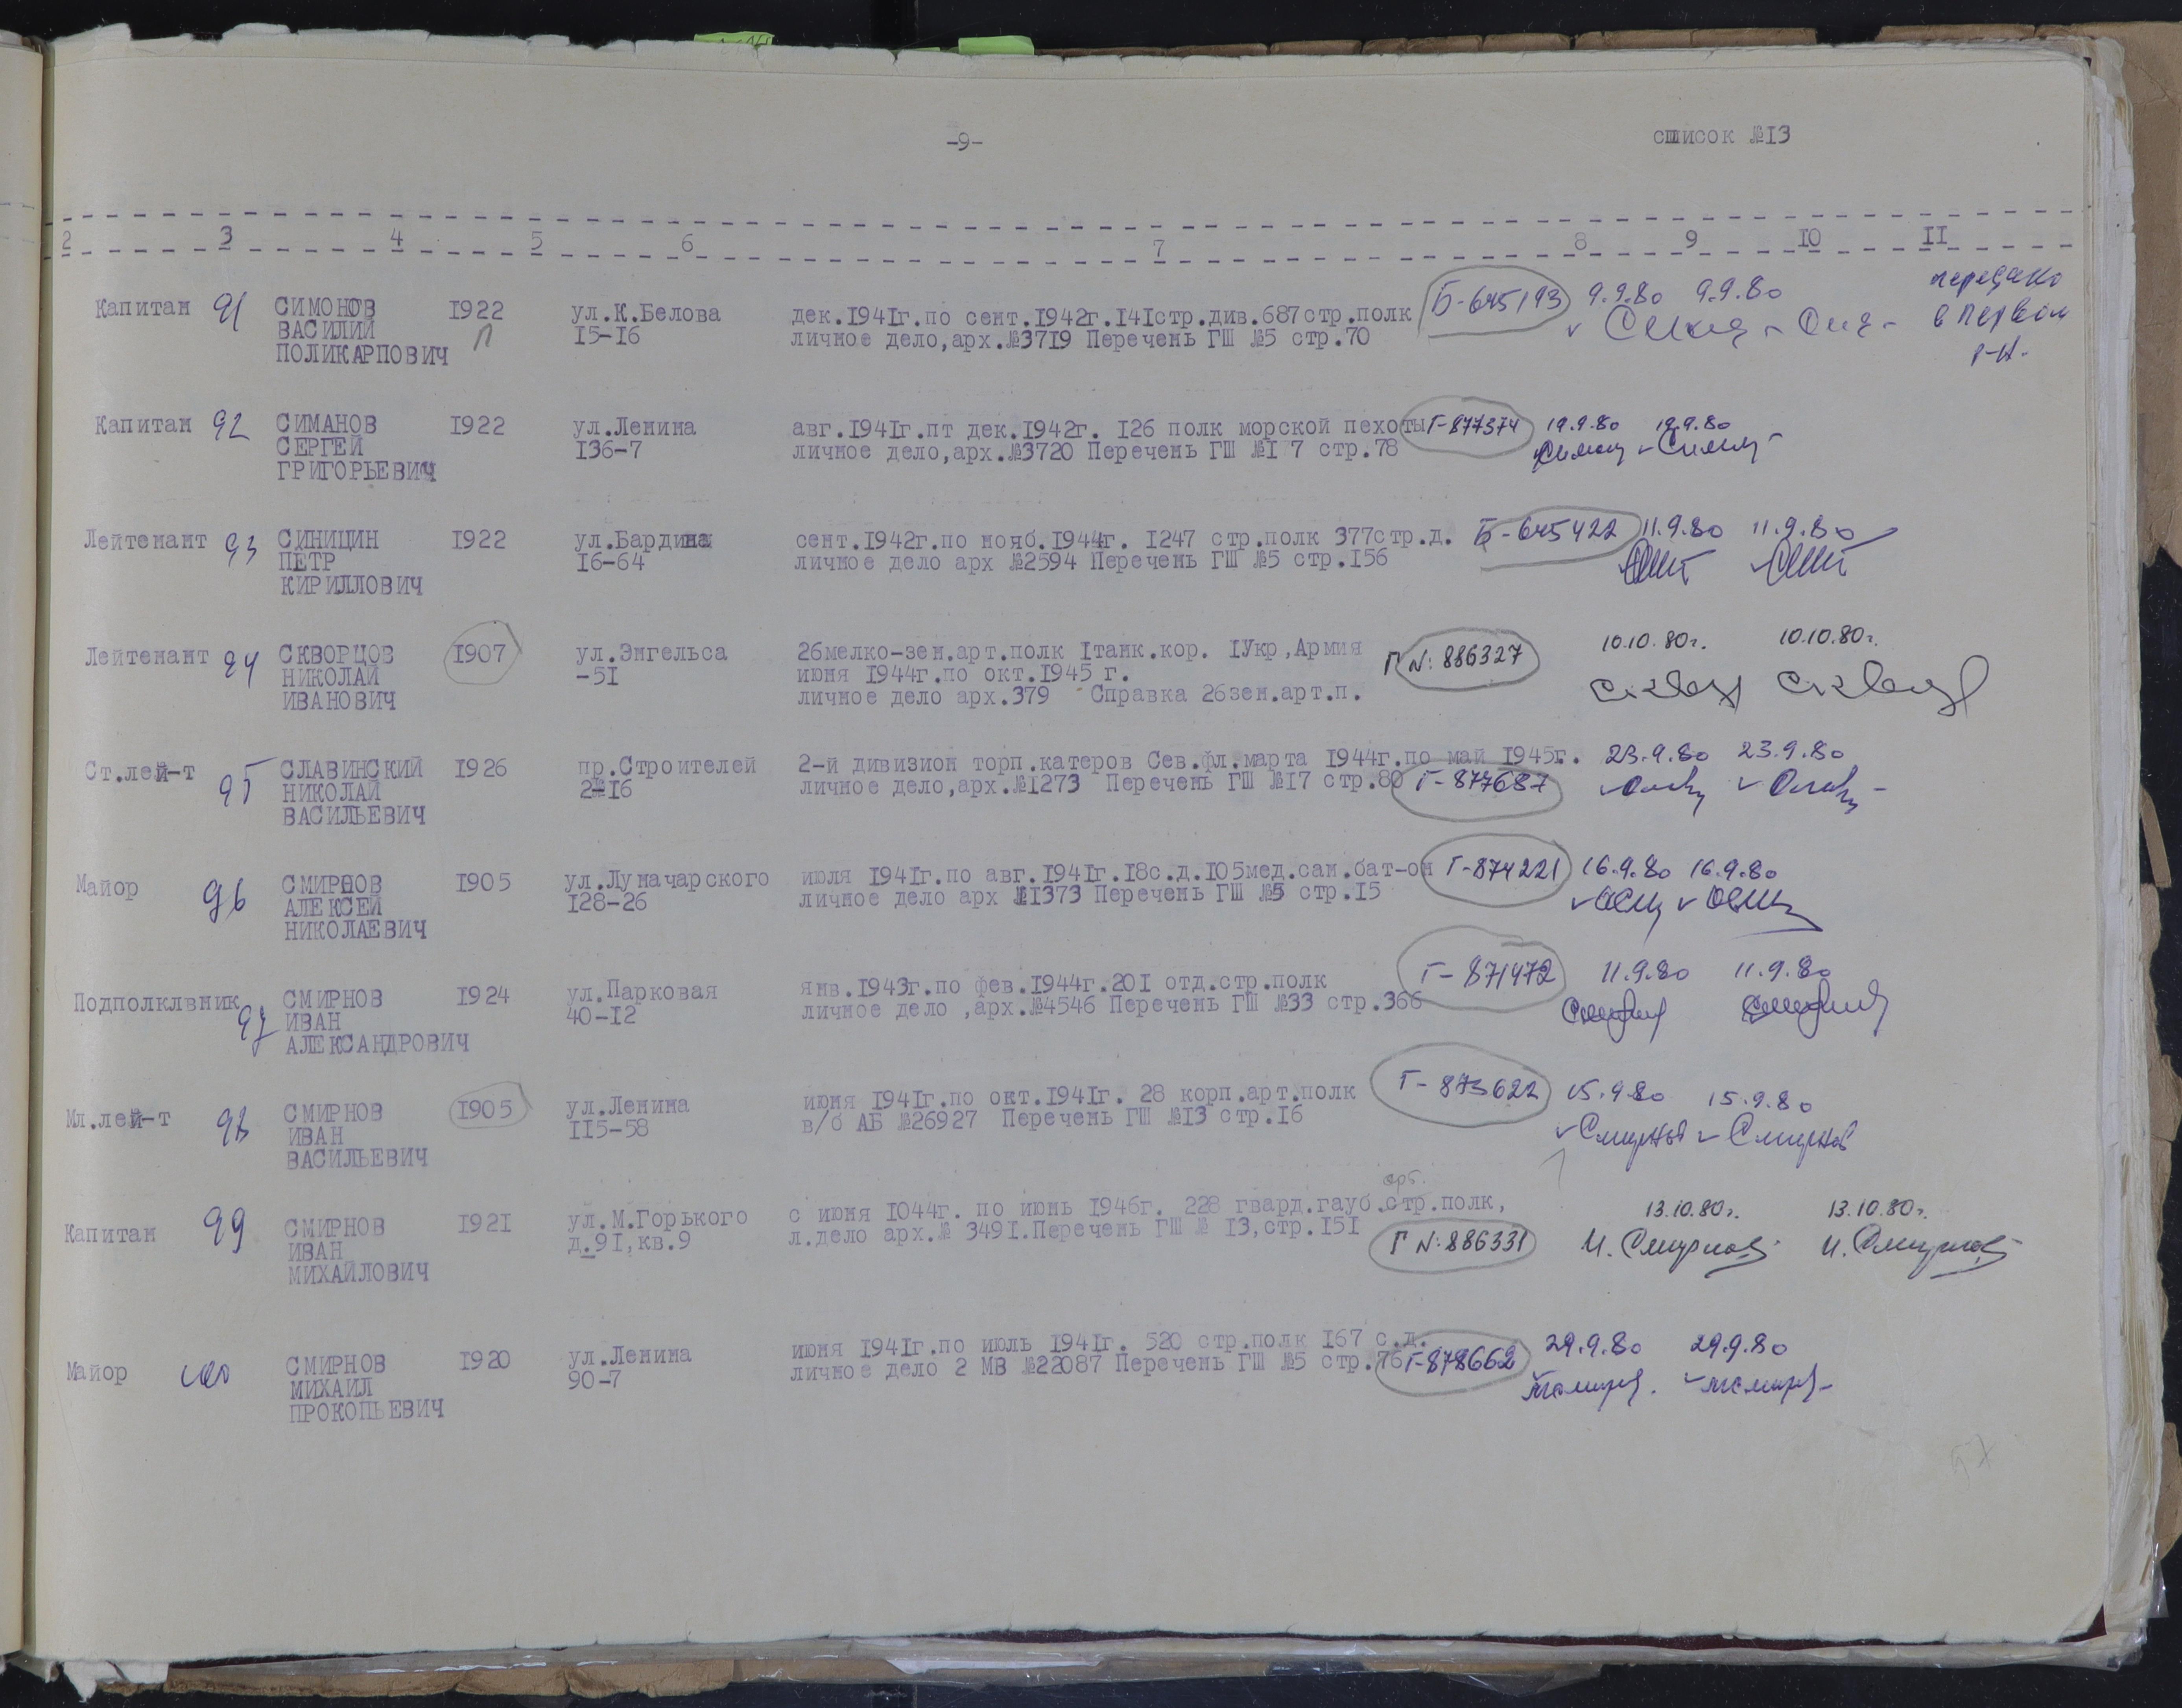 -9-
список №13
2 3 4 5 6 7 8 9 10 11
Капитан 91 СИМОНОВ 1922 ул.К.Белова дек.1941г.по сент.1942г.141стр.див.687стр.полк Б-645193 9.9.80 9.9.80 передано
ВАСИЛИЙ П 15-16 личное дело,арх.№3719 Перечень ГШ №5 стр.70 в первом
ПОЛИКАРПОВИЧ р-н.
Капитан 92 СИМАНОВ 1922 ул.Ленина авг.1941г.пт дек.1942г. 126 полк морской пехоты Г-877374 19.9.80 19.9.80
СЕРГЕЙ 136-7 личное дело,арх.№3720 Перечень ГШ №1 7 стр.78
ГРИГОРЬЕВИЧ
Лейтенант 93 СИНИЦИН 1922 ул.Бардина сент.1942г.по нояб.1944г. 1247 стр.полк 377стр.д. Б-645422 11.9.80 11.9.80
ПЁТР 16-64 личное дело арх №2594 Перечень ГШ №5 стр.156
КИРИЛЛОВИЧ
Лейтенант 94 СКВОРЦОВ 1907 ул.Энгельса 26мелко-зен.арт.полк 1танк.кор. 1Укр,Армия Г N: 886327 10.10.80г. 10.10.80г.
НИКОЛАЙ -51 июня 1944г.по окт.1945 г.
ИВАНОВИЧ личное дело арх.379 Справка 26зен.арт.п.
Ст.лей-т 95 СЛАВИНСКИЙ 1926 пр.Строителей 2-й дивизион торп.катеров Сев.фл.марта 1944г.по май 1945г. 23.9.80 23.9.80
НИКОЛАЙ 2-16 личное дело,арх.№1273 Перечень ГШ №17 стр.80 Г-877687
ВАСИЛЬЕВИЧ
Майор 96 СМИРНОВ 1905 ул.Луначарского июля 1941г.по авг.1941г.18с.д.105мед.сан.бат-он Г-874221 16.9.80 16.9.80
АЛЕКСЕЙ 128-26 личное дело арх №1373 Перечень ГШ №5 стр.15
НИКОЛАЕВИЧ
Подполклвник 97 СМИРНОВ 1924 ул.Парковая янв.1943г.по фев.1944г.201 отд.стр.полк Г-871472 11.9.80 11.9.80
ИВАН 40-12 личное дело ,арх.№4546 Перечень ГШ №33 стр.366
АЛЕКСАНДРОВИЧ
Мл.лей-т 98 СМИРНОВ 1905 ул.Ленина июня 1941г.по окт.1941г. 28 корп.арт.полк Г-873622 15.9.80 15.9.80
ИВАН 115-58 в/б АБ №26927 Перечень ГШ №13 стр.16 Смирнов Смирнов
ВАСИЛЬЕВИЧ
арт.
Капитан 99 СМИРНОВ 1921 ул.М.Горького с июня 1044г. по июнь 1946г. 228 гвард.гауб.стр.полк, 13.10.80г. 13.10.80г.
ИВАН д.91,кв.9 л.дело арх.№ 3491.Перечень ГШ № 13,стр.151 Г N: 886331 И. Смирнов И. Смирнов
МИХАЙЛОВИЧ
Майор 100 СМИРНОВ 1920 ул.Ленина июня 1941г.по июль 1941г. 520 стр.полк 167 с.д. 29.9.80 29.9.80
МИХАИЛ 90-7 личное дело 2 МВ №22087 Перечень ГШ №5 стр.76 Г-878662
ПРОКОПЬЕВИЧ
57